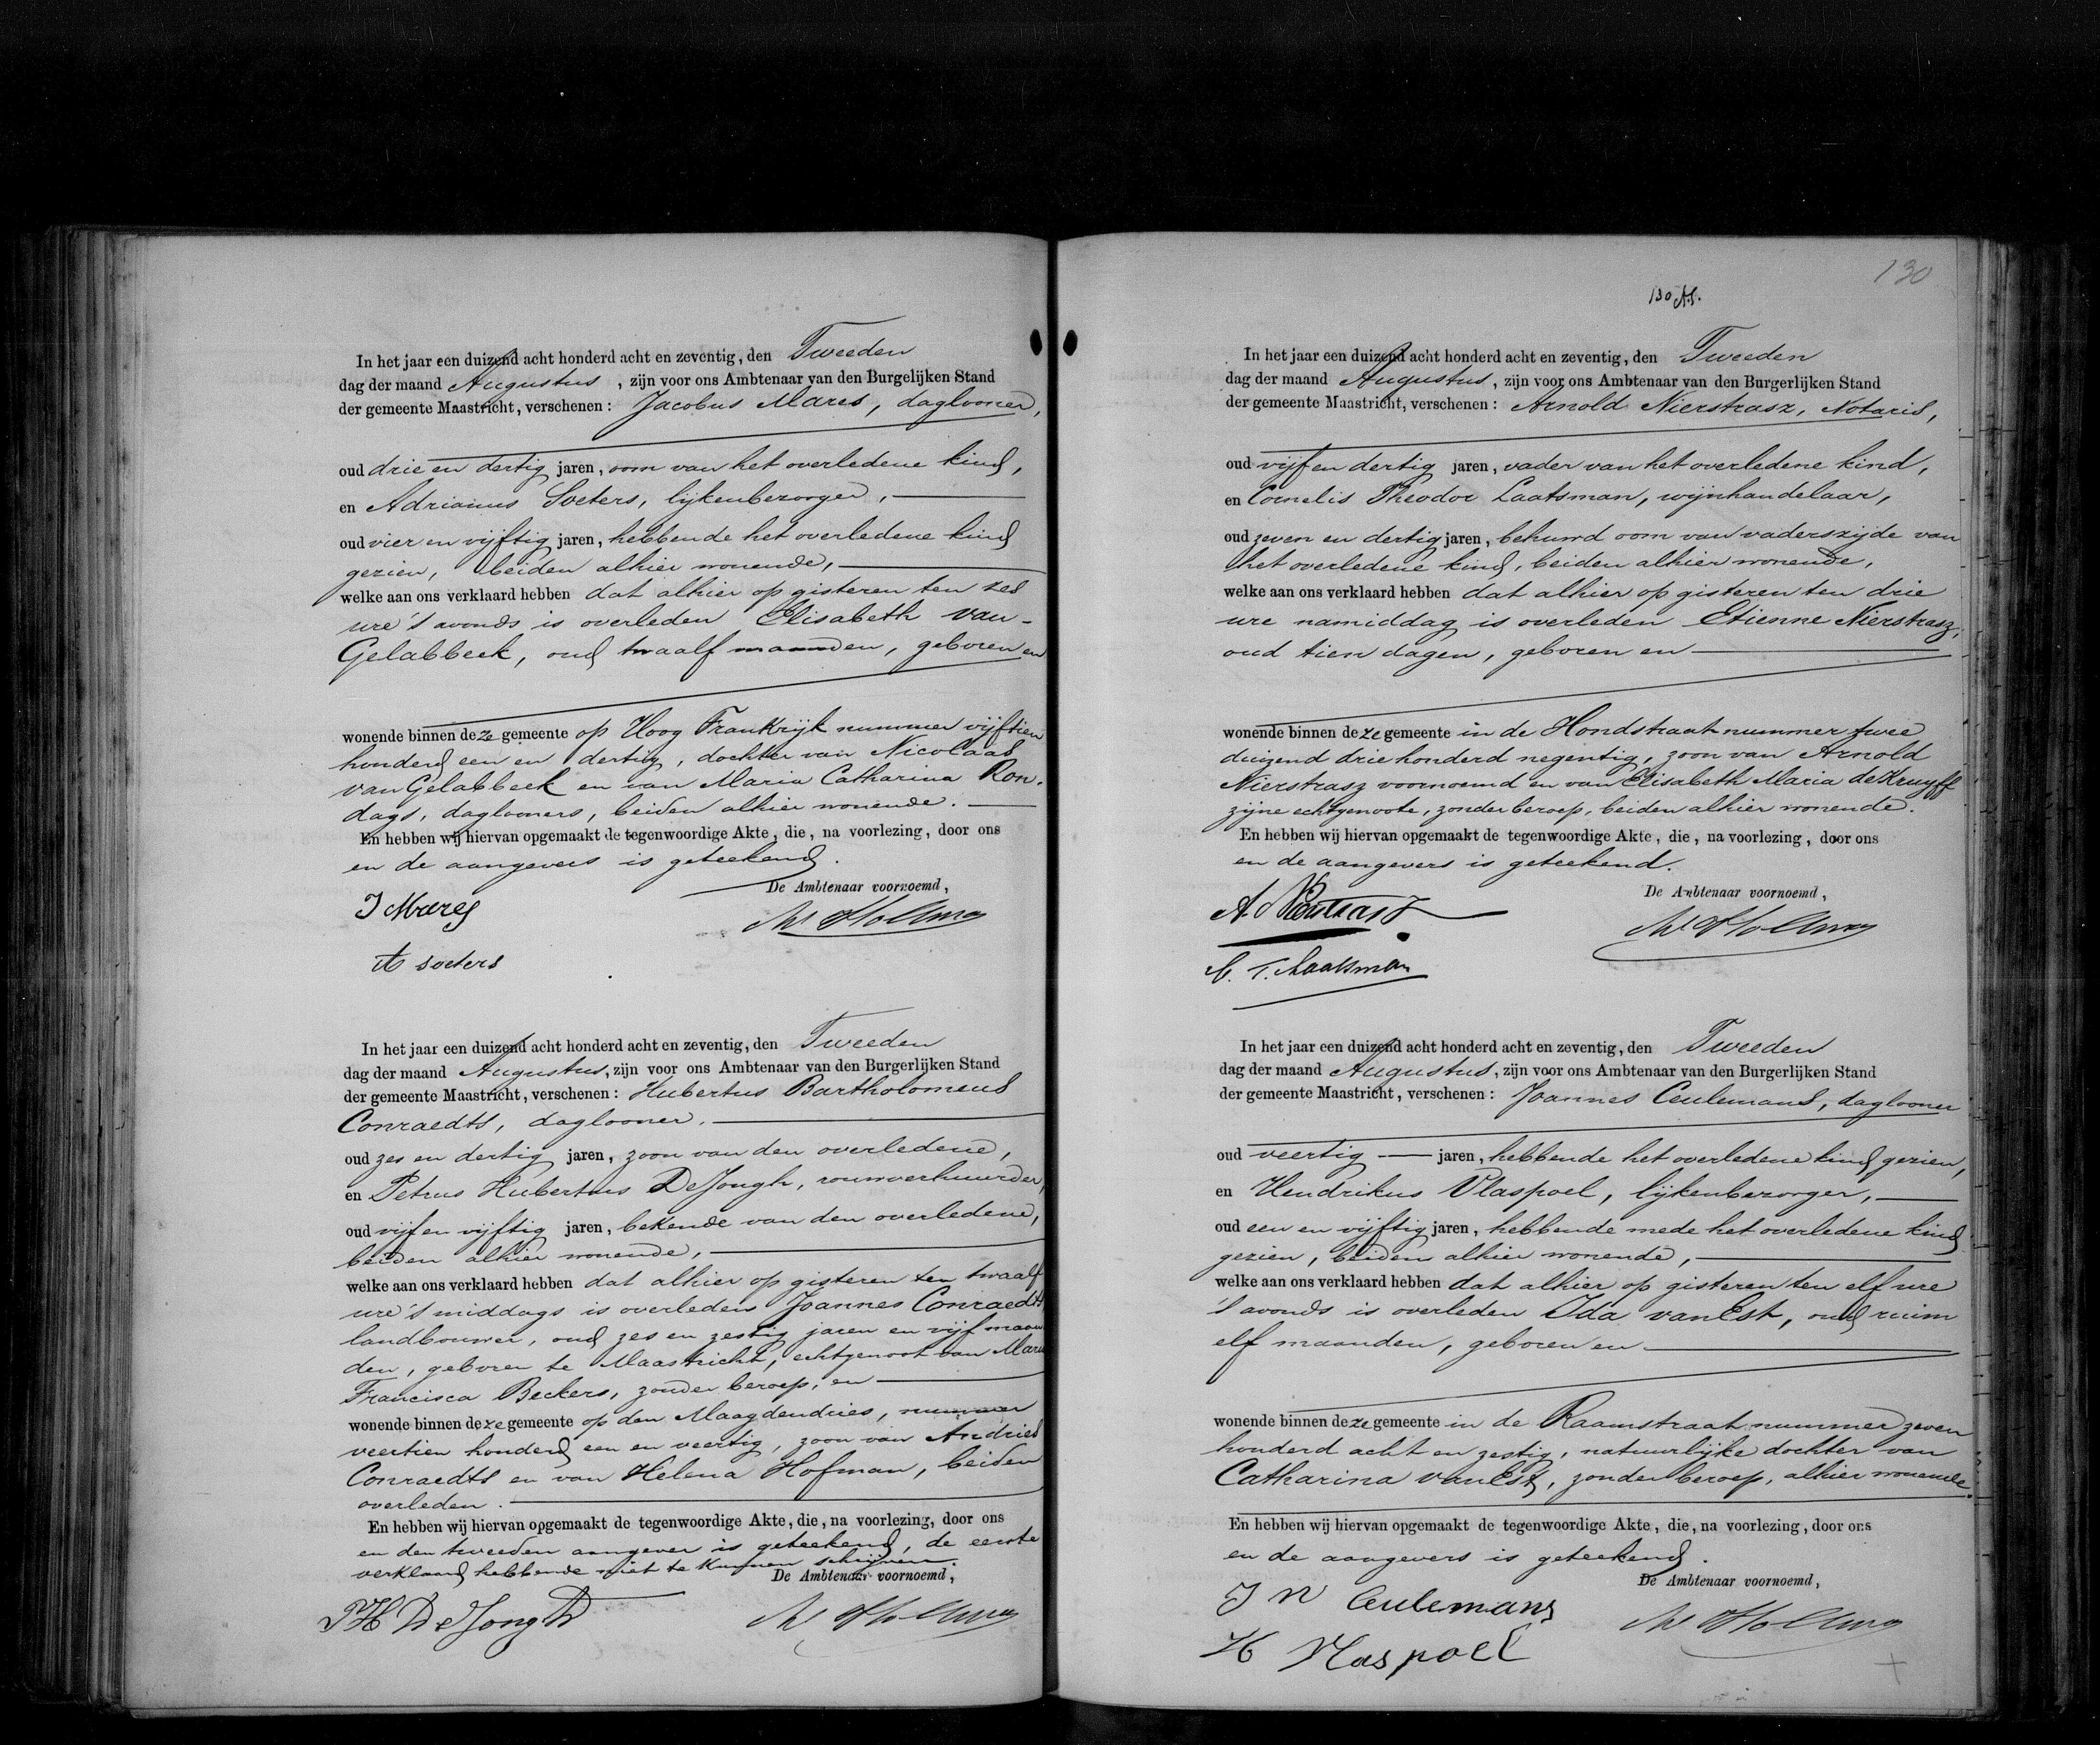 In het jaar een duizend acht honderd acht en zeventig, den Tweeden
dag der maand Augustus, zijn voor ons Ambtenaar van den Burgelijken Stand
der gemeente Maastricht, verschenen: Jacobus Mares, daglooner,
oud drie en dertig jaren, oom van het overledene kind,
en Adrianus Soeters, lijkenbezorger,
oud vier en vijftig jaren, hebbende het overledene kind
gezien, beiden alhier wonende,
welke aan ons verklaard hebben dat alhier op gisteren ten zes
ure 's avonds is overleden Elisabeth van-
Gelabbeek, oud twaalf maanden, geboren en
wonende binnen deze gemeente op Hoog Frankrijk nummer vijftien
honderd een en dertig, dochter van Nicolaas
van Gelabbeek en van Maria Catharina Ron-
dags, daglooners, beiden alhier wonende.
En hebben wij hiervan opgemaakt de tegenwoordige Akte, die, na voorlezing, door ons
en de aangevers is geteekend.
De Ambtenaar voornoemd,
J Mares
A Soeters
In het jaar een duizend acht honderd acht en zeventig, den Tweeden
dag der maand Augustus, zijn voor ons Ambtenaar van den Burgerlijken Stand
der gemeente Maastricht, verschenen: Hubertus Bartholomeus
Conraedts, daglooner.
oud zes en dertig jaren, zoon van den overledene,
en Petrus Hubertus DeJongh, rouwverhuurder,
oud vijf en vijftig jaren, bekende van den overledene,
beiden alhier wonende,
welke aan ons verklaard hebben dat alhier op gisteren ten twaalf
ure 's middags is overleden Joannes Conraedts
landbouwer, oud zes en zestig jaren en vijf maan
den, geboren te Maastricht, echtgenoot van Maria
Francisca Beckers, zonder beroep, en
wonende binnen deze gemeente op den Maagdendries, nummer
veertien honderd een en veertig, zoon van Andries
Conraedts en van Helena Hofman, beiden
overleden.
En hebben wij hiervan opgemaakt de tegenwoordige Akte, die, na voorlezing, door ons
en den tweeden aangever is geteekend, de eerste
verklaard hebbende niet te kunnen schrijven.
De Ambtenaar voornoemd,
PH DeJongh
130
130
In het jaar een duizend acht honderd acht en zeventig, den Tweeden
dag der maand Augustus, zijn voor ons Ambtenaar van den Burgerlijken Stand
der gemeente Maastricht, verschenen: Arnold Nierstrasz, Notaris,
oud vijf en dertig jaren, vader van het overledene kind,
en Cornelis Theodor Laatsman, wijnhandelaar,
oud zeven en dertig jaren, behuwd oom van vaderszijde van
het overledene kind, beiden alhier wonende,
welke aan ons verklaard hebben dat alhier op gisteren ten drie
ure namiddag is overleden Etienne Nierstrasz,
oud tien dagen, geboren en
wonende binnen deze gemeente in de Hondstraat nummer twee
duizend driehonderd negentig, zoon van Arnold
Nierstrasz voornoemd en van Elisabeth Maria de Kruyff
zijne echtgenoote, zonder beroep, beiden alhier wonende.
En hebben wij hiervan opgemaakt de tegenwoordige Akte, die, na voorlezing, door ons
en de aangevers is geteekend.
De Ambtenaar voornoemd,
A. Nierstrasz
C. T. Laatsman
In het jaar een duizend acht honderd acht en zeventig, den Tweeden
dag der maand Augustus, zijn voor ons Ambtenaar van den Burgerlijken Stand
der gemeente Maastricht, verschenen: Joannes Ceulemans, daglooner
oud veertig jaren, hebbende het overledene kind gezien,
en Hendrikus Vlaspoel, lijkenbezorger,
oud een en vijftig jaren, hebbende mede het overledene kind
gezien, beiden alhier wonende,
welke aan ons verklaard hebben dat alhier op gisteren ten elf ure
's avonds is overleden Ida van Est, oud ruim
elf maanden, geboren en
wonende binnen deze gemeente in de Raamstraat nummer zeven
honderd acht en zestig, natuurlijke dochter van
Catharina van Est, zonder beroep, alhier wonende.
En hebben wij hiervan opgemaakt de tegenwoordige Akte, die, na voorlezing, door ons
en de aangevers is geteekend.
De Ambtenaar voornoemd,
J N Ceulemans
H Vlaspoel